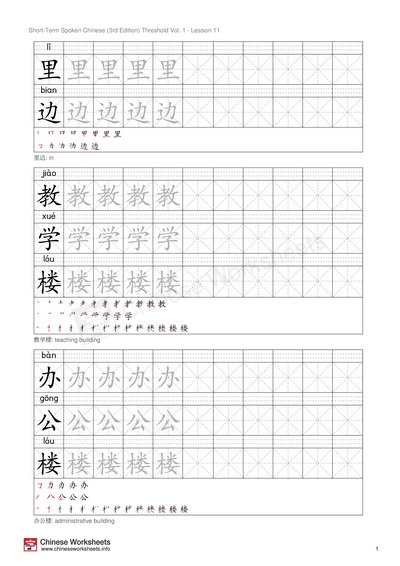 Short-Term Spoken Chinese (3rd Edition) Threshold Vol. 1 - Lesson 11
lǐ
里 里 里 里 里
bian
边 边 边 边 边
里边: in
jiào
教 教 教 教 教
xué
学 学 学 学 学
lóu
楼 楼 楼 楼 楼
教学楼: teaching building
bàn
办 办 办 办 办
gōng
公 公 公 公 公
lóu
楼 楼 楼 楼 楼
办公楼: administrative building
Chinese Worksheets
www.chineseworksheets.info
1